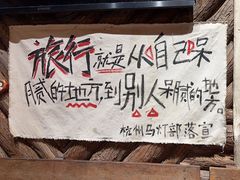 旅行就是从自己呆
腻的地方,到别人呆腻的地方。
杭州马灯部落宣